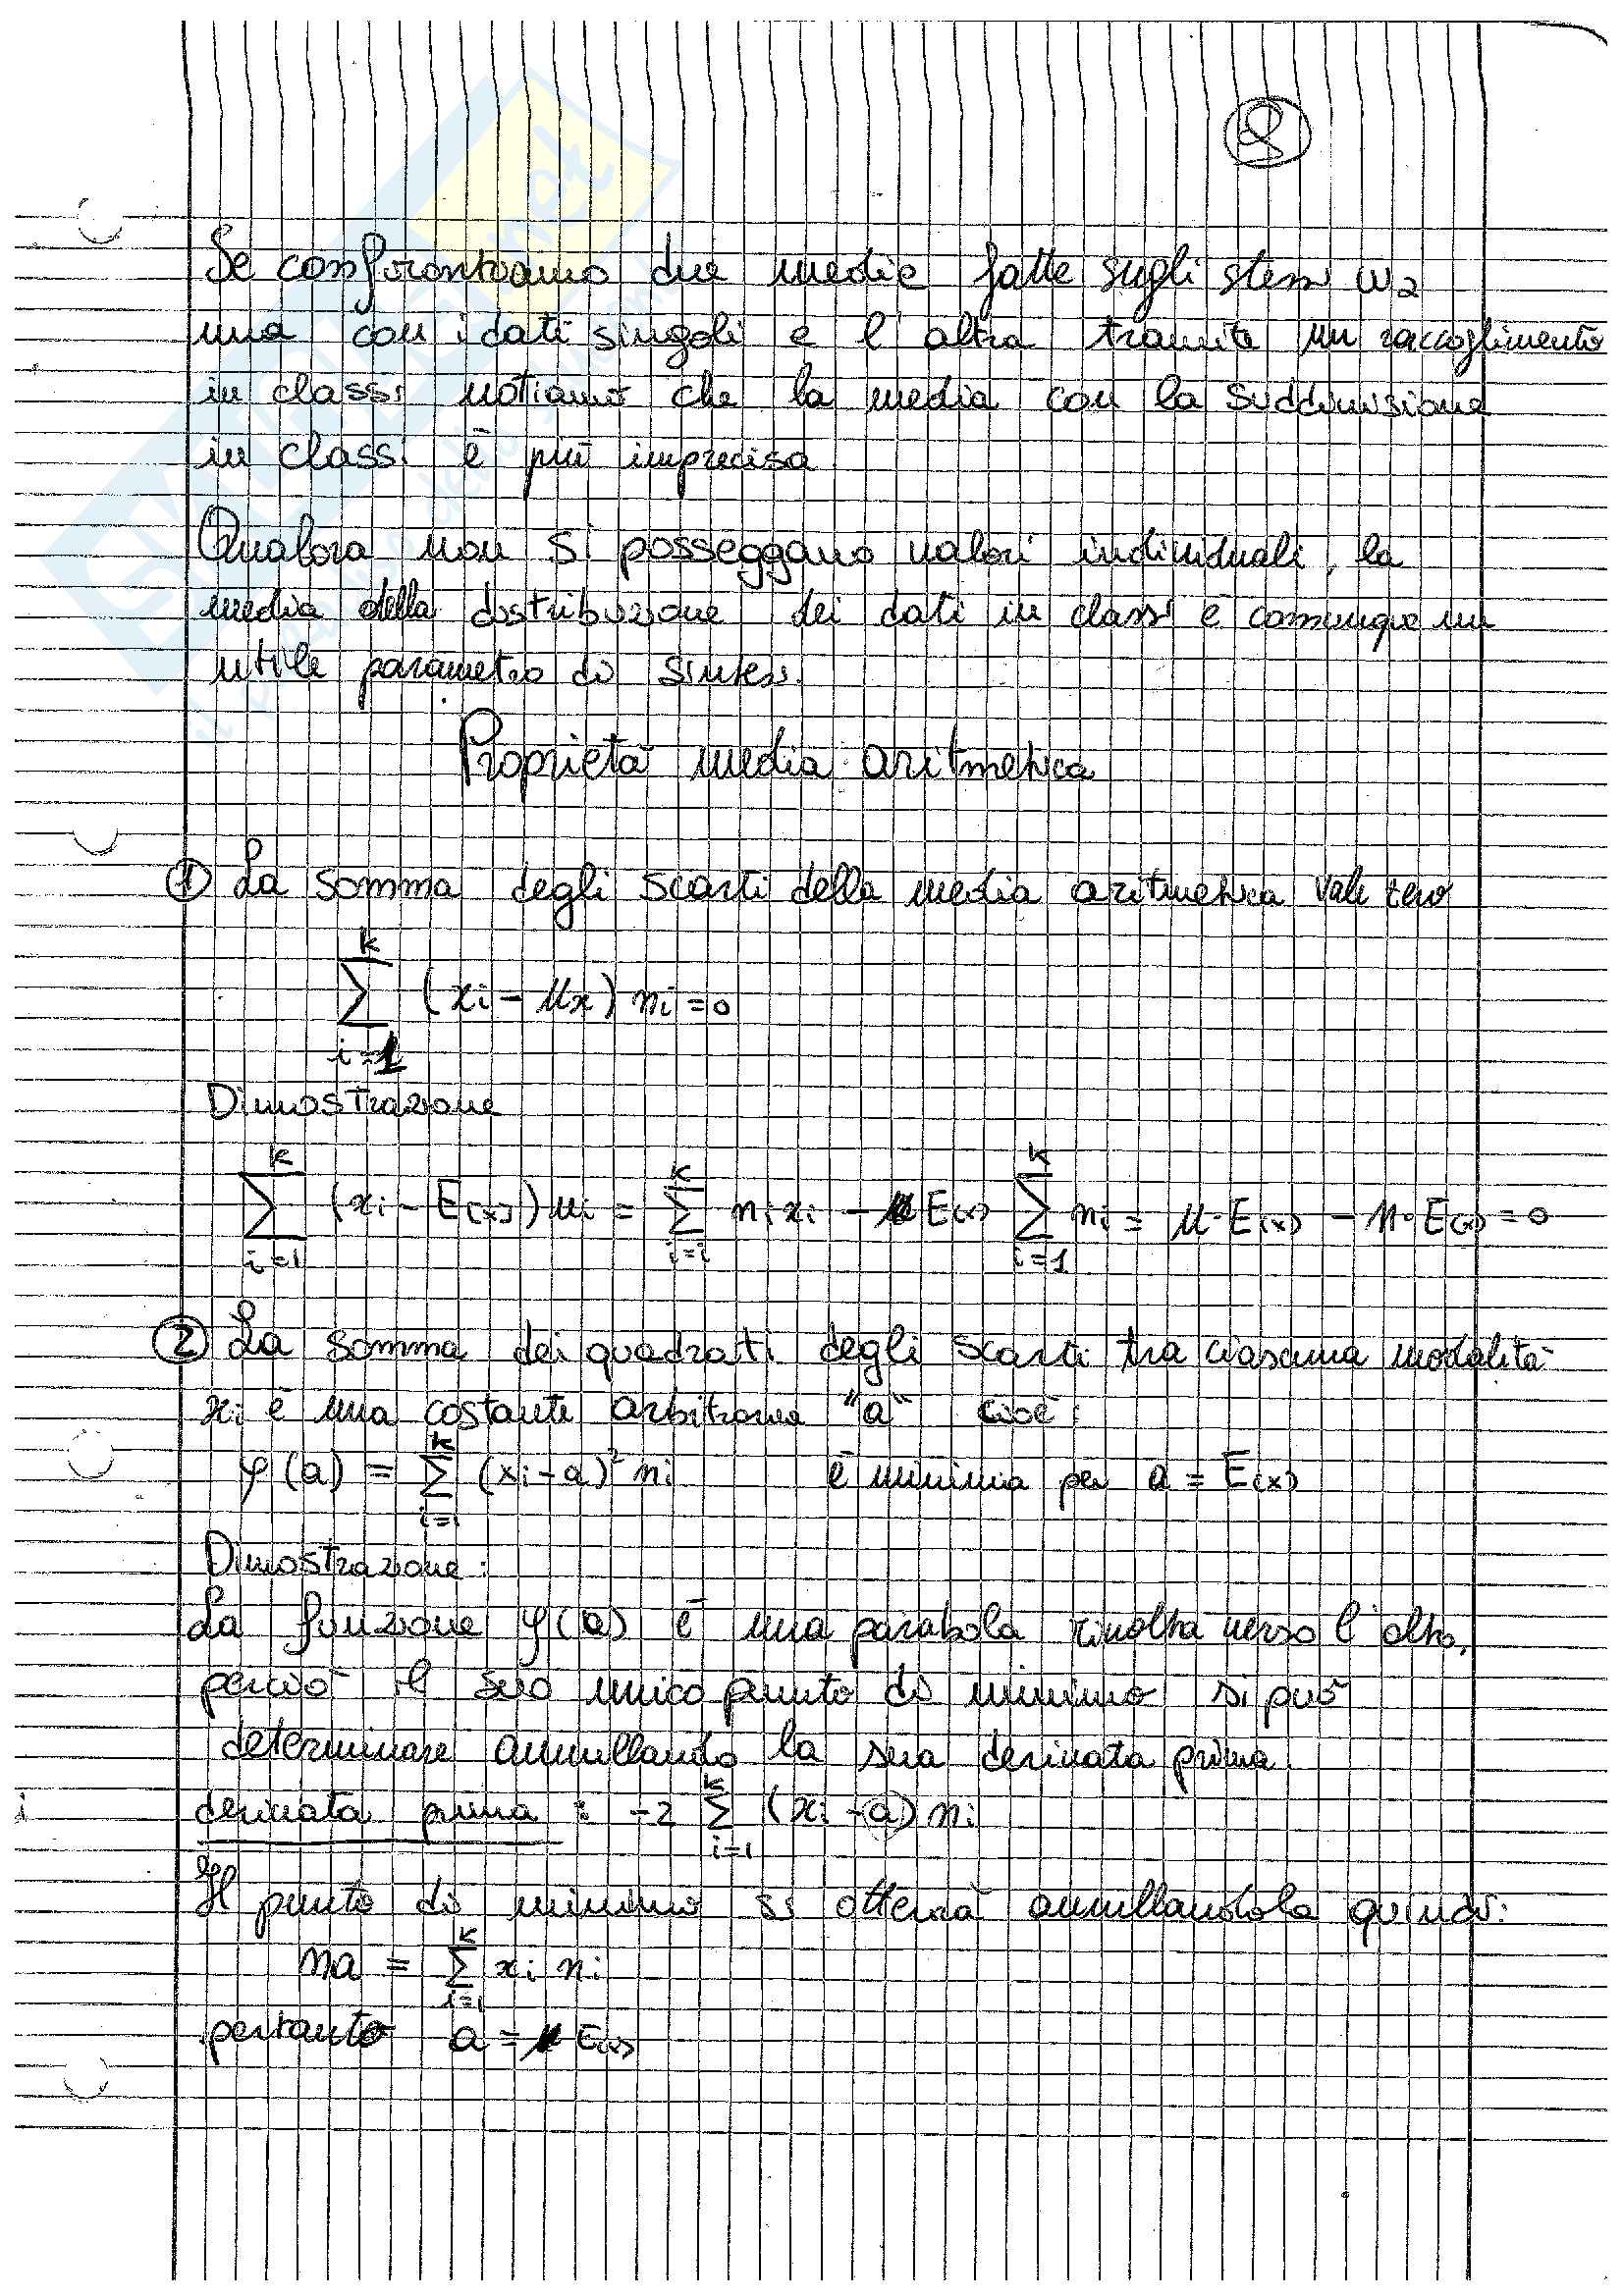 8
Se confrontiamo due medie fatte sugli stessi
una con i dati singoli e l'altra tramite un raccoglimento
in classi notiamo che la media con la suddivisione
in classi è più imprecisa
Qualora non si posseggano valori individuali, la
media della distribuzione dei dati in classi è comunque un
utile parametro di sintesi.
Proprietà media aritmetica
① La somma degli scarti della media aritmetica vale zero
k
∑ (xi - μx) ni = 0
i=1
Dimostrazione
k k k
∑ (xi - E(x)) ni = ∑ ni xi - E(x) ∑ ni = n·E(x) - n·E(x) = 0
i=1 i=i i=1
② La somma dei quadrati degli scarti tra ciascuna modalità
xi è una costante arbitraria "a" cioè:
k
φ(a) = ∑ (xi - a)² ni è minima per a = E(x)
i=1
Dimostrazione:
La funzione φ(a) è una parabola rivolta verso l'alto,
perciò il suo unico punto di minimo si può
determinare annullando la sua derivata prima.
k
derivata prima: -2 ∑ (xi - a) ni
i=1
Il punto di minimo si otterrà annullandola quindi:
k
na = ∑ xi ni
i=1
pertanto a = E(x)